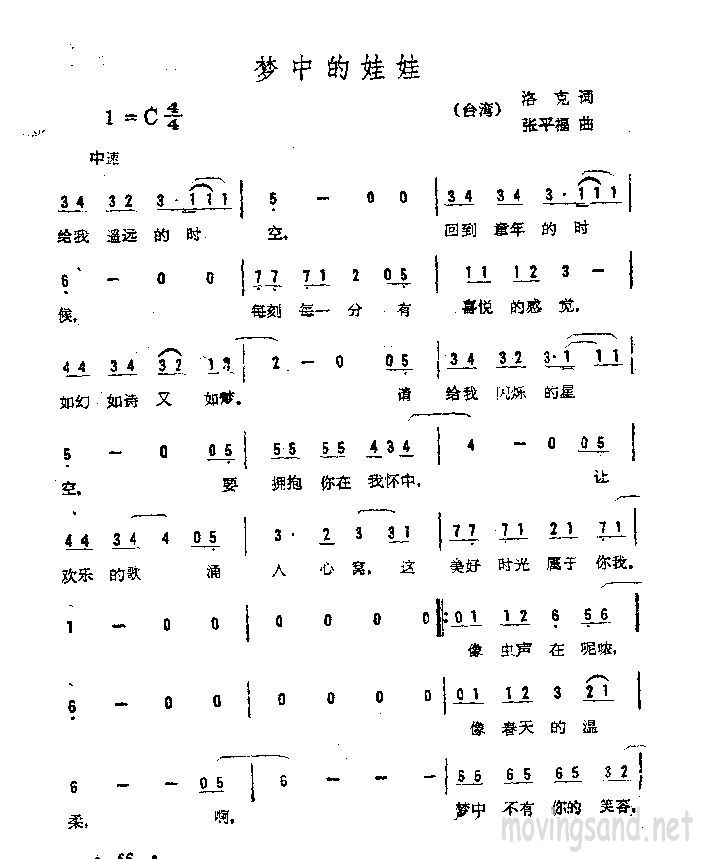 梦中的娃娃
1=C 4/4
（台湾） 洛克 词
张平福 曲
中速
34 32 3·111 | 5 — 0 0 | 34 34 3·111 |
给我 遥远 的 时 空， 回到 童年 的 时
6 — 0 0 | 77 71 2 05 | 11 12 3 — |
候， 每刻 每一 分 有 喜悦 的感 觉，
44 34 32 13 | 2 — 0 05 | 34 32 3·1 11 |
如幻 如诗 又 如梦。 请 给我 闪烁 的星
5 — 0 05 | 55 55 434 | 4 — 0 05 |
空， 要 拥抱 你在 我怀中， 让
44 34 4 05 | 3· 2 3 31 | 77 71 21 71 |
欢乐 的歌 涌 入 心 窝，这 美好 时光 属于 你我。
1 — 0 0 | 0 0 0 0 ‖: 01 12 6 56 |
像 虫声 在 呢哝，
6 — 0 0 | 0 0 0 0 | 01 12 3 21 |
像 春天 的 温
6 — — 05 | 6 — — — | 66 65 65 32 |
柔， 啊， 梦中 不有 你的 笑容，
movingsand.net
· 66 ·